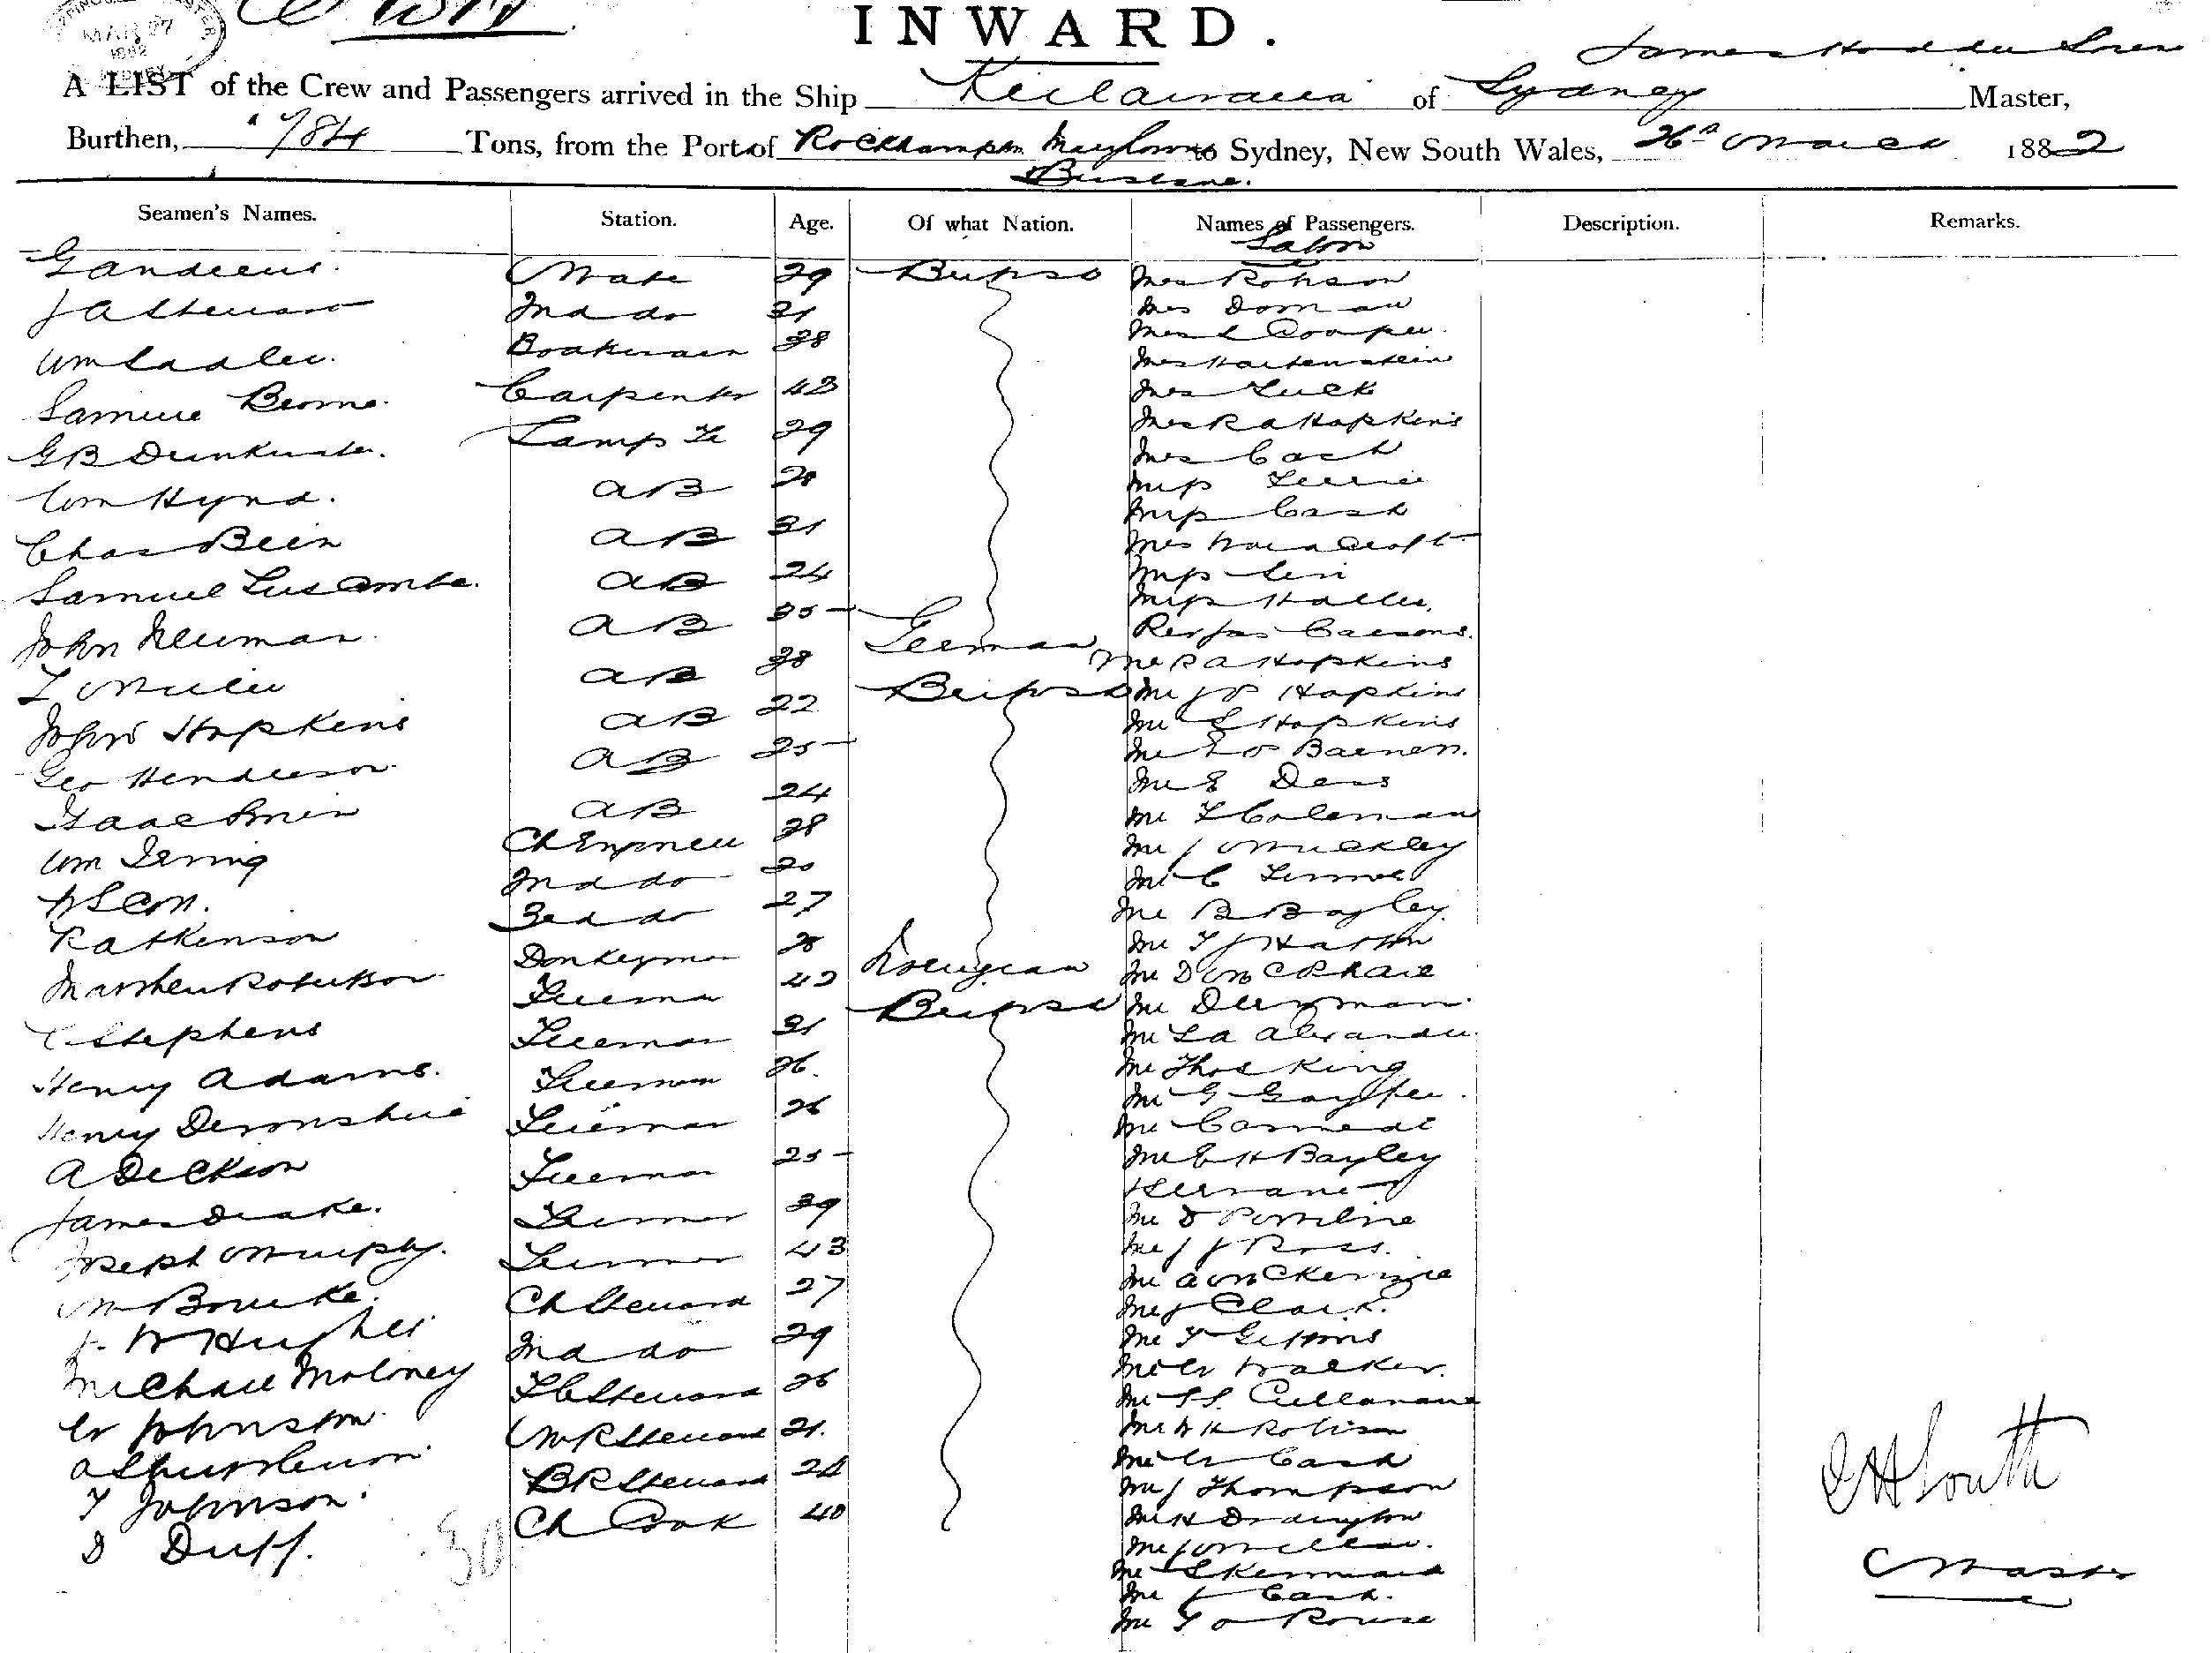 INWARD.
MAR 27
1882
A LIST of the Crew and Passengers arrived in the Ship of Sydney Master,
James
Burthen, 784 Tons, from the Port of Rockhampton to Sydney, New South Wales, 26 March 1882
Brisbane.
Seamen's Names. Station. Age. Of what Nation. Names of Passengers. Description. Remarks.
Saloon
G Andrews. Mate 29 British Mrs Robson
J A Steward 2nd do 31 Mrs Dornan
Wm Sadler. Boatswain 38 Mrs L Cooper.
Samuel Beome. Carpenter 43 Mrs Hartenstein
G B Drinkwater. Lamp Tr 29 Mrs Luck
Wm Hynd. AB 28 Mrs R A Hopkins
Chas Bein AB 31 Mrs Cash
Samuel Luscombe. AB 24 Miss
John Neuman AB 35 German Miss Cash
AB 38 British Mrs
John Hopkins AB 22 Miss
Geo Henderson AB 25 Miss Haller.
Isaac AB 24
Wm Irving Ch Engineer 38 Mr R A Hopkins
2nd do 30 Mr J P Hopkins
R Atkinson 3rd do 27 Mr S Hopkins
Matthew Robertson Donkeyman 28 Norwegian Mr
C Stephens Fireman 42 British Mr E Dens
Henry Adams. Fireman 31 Mr T Coleman
Henry Devonshire Fireman 26. Mr J Muckley
A Dickson Fireman 26 Mr C
James Drake. Fireman 25 Mr B Bagley
Joseph Murphy. Fireman 39 Mr T J
M Bourke. Fireman 43 Mr D McPhail
J. W Hughes Ch Steward 27 Mr Derryman
Michael Moloney 2nd do 29 Mr L A Alexander
W Johnston F C Steward 26 Mr Thos King
A M R Steward 21. Mr G
T Johnson. B R Steward 24 Mr
D Duff. Ch Cook 40 Mr E H Bayley
30
& Servant
Mr D
Mr J J Ross.
Mr A McKenzie
Mr J Clark.
Mr T Gibbons
Mr W Walker.
Mr S S. Cullanane
Mr W H Robison
Mr W Cash
Mr J Thompson
Mr H
Mr J McLean.
Mr
Mr J Cash.
Mr T A Rouse
South
Master